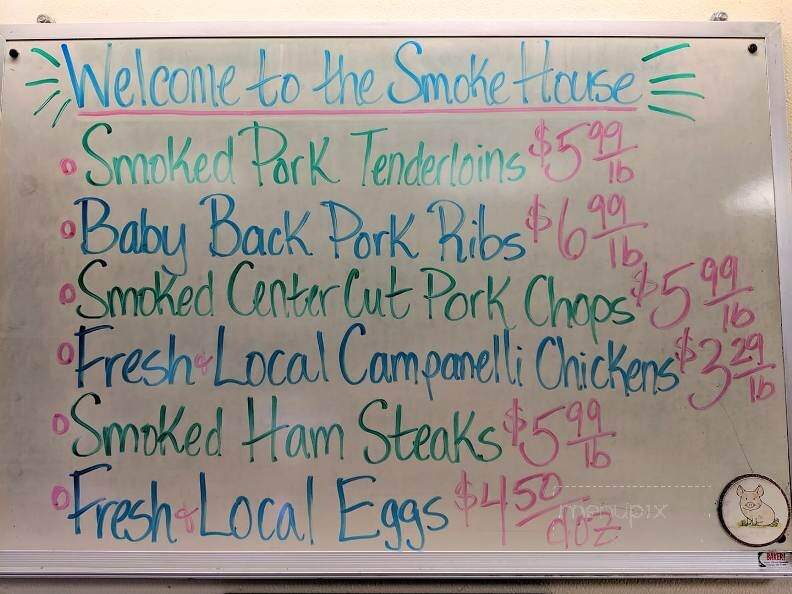 Welcome to the Smoke House
Smoked Pork Tenderloins $5 99/lb
Baby Back Pork Ribs $6 99/lb
Smoked Center Cut Pork Chops $5 99/lb
Fresh & Local Campanelli Chickens $3 29/lb
Smoked Ham Steaks $5 99/lb
Fresh & Local Eggs $4 50/doz
menupix
BAKER!